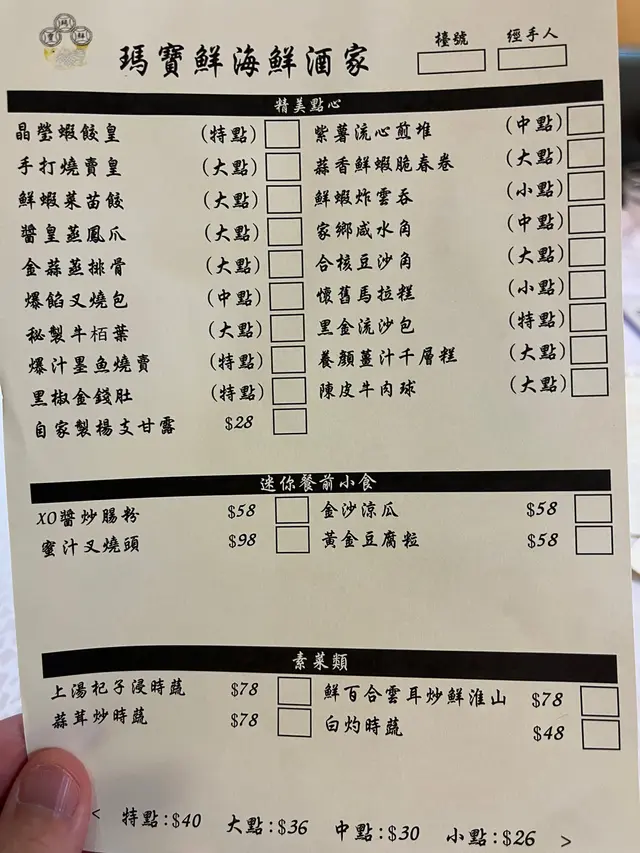 瑪寶鮮海鮮酒家
檯號
經手人
精美點心
晶瑩蝦餃皇 (特點)
手打燒賣皇 (大點)
鮮蝦菜苗餃 (大點)
醬皇蒸鳳爪 (大點)
金蒜蒸排骨 (大點)
爆餡叉燒包 (中點)
秘製牛栢葉 (大點)
爆汁墨魚燒賣 (特點)
黑椒金錢肚 (特點)
自家製楊支甘露 $28
紫薯流心煎堆 (中點)
蒜香鮮蝦脆春卷 (大點)
鮮蝦炸雲吞 (小點)
家鄉咸水角 (中點)
合核豆沙角 (大點)
懷舊馬拉糕 (小點)
黑金流沙包 (特點)
養顏薑汁千層糕 (大點)
陳皮牛肉球 (大點)
迷你餐前小食
XO醬炒腸粉 $58
蜜汁叉燒頭 $98
金沙涼瓜 $58
黃金豆腐粒 $58
素菜類
上湯杞子浸時蔬 $78
蒜茸炒時蔬 $78
鮮百合雲耳炒鮮淮山 $78
白灼時蔬 $48
< 特點:$40 大點:$36 中點:$30 小點:$26 >